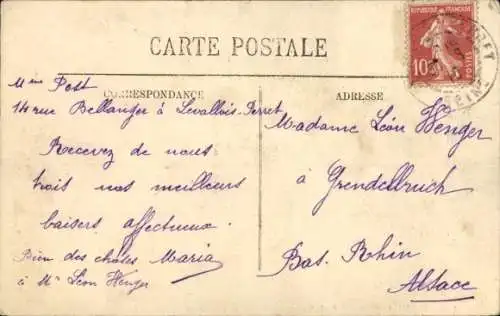 CARTE POSTALE
RÉPUBLIQUE FRANÇAISE
10c
POSTES
CORRESPONDANCE
ADRESSE
Mme Post
14 rue Bellanger à Levallois-Perret
Recevez de nous
trois nos meilleurs
baisers affectueux.
Bien des choses Maria
à Mr Léon Henger
Madame Léon Henger
à Grendelbruch
Bas. Rhin
Alsace